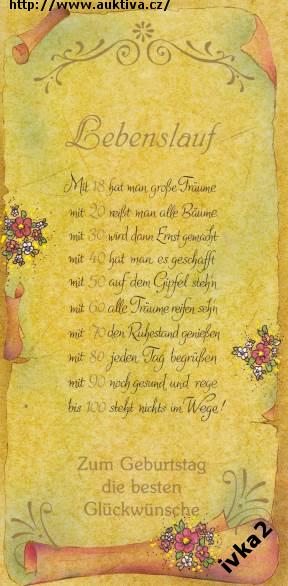 http://www.auktiva.cz/
Lebenslauf
Mit 18 hat man große Träume
mit 20 reißt man alle Bäume
mit 30 wird dann Ernst gemacht
mit 40 hat man es geschafft
mit 50 auf dem Gipfel steh'n
mit 60 alle Träume reifen seh'n
mit 70 den Ruhestand genießen
mit 80 jeden Tag begrüßen
mit 90 noch gesund und rege
bis 100 steht nichts im Wege!
Zum Geburtstag
die besten
Glückwünsche
ivka2